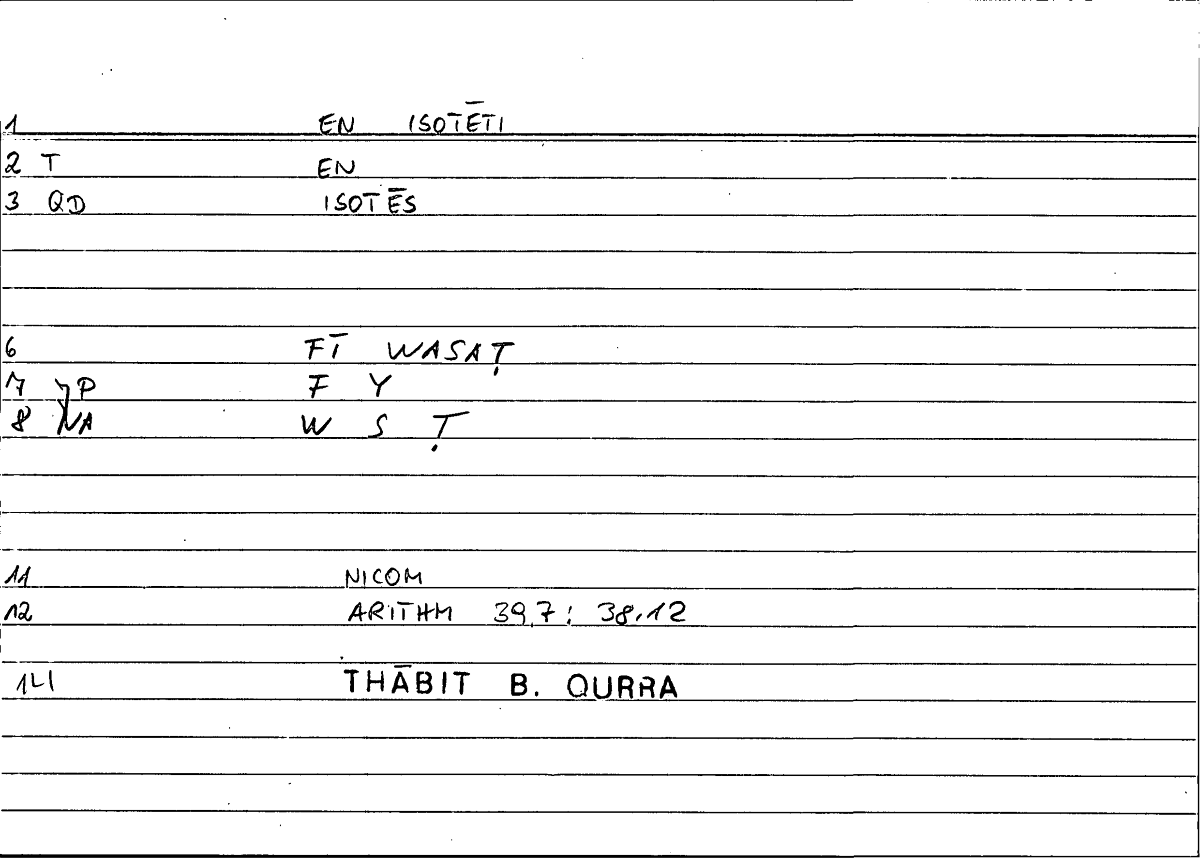 1 EN ISOTĒTI
2 T EN
3 QD ISOTĒS
6 FĪ WASAṬ
7 P F Y
8 NA W S Ṭ
11 NICOM
12 ARITHM 39,7: 38,12
14 THĀBIT B. QURRA